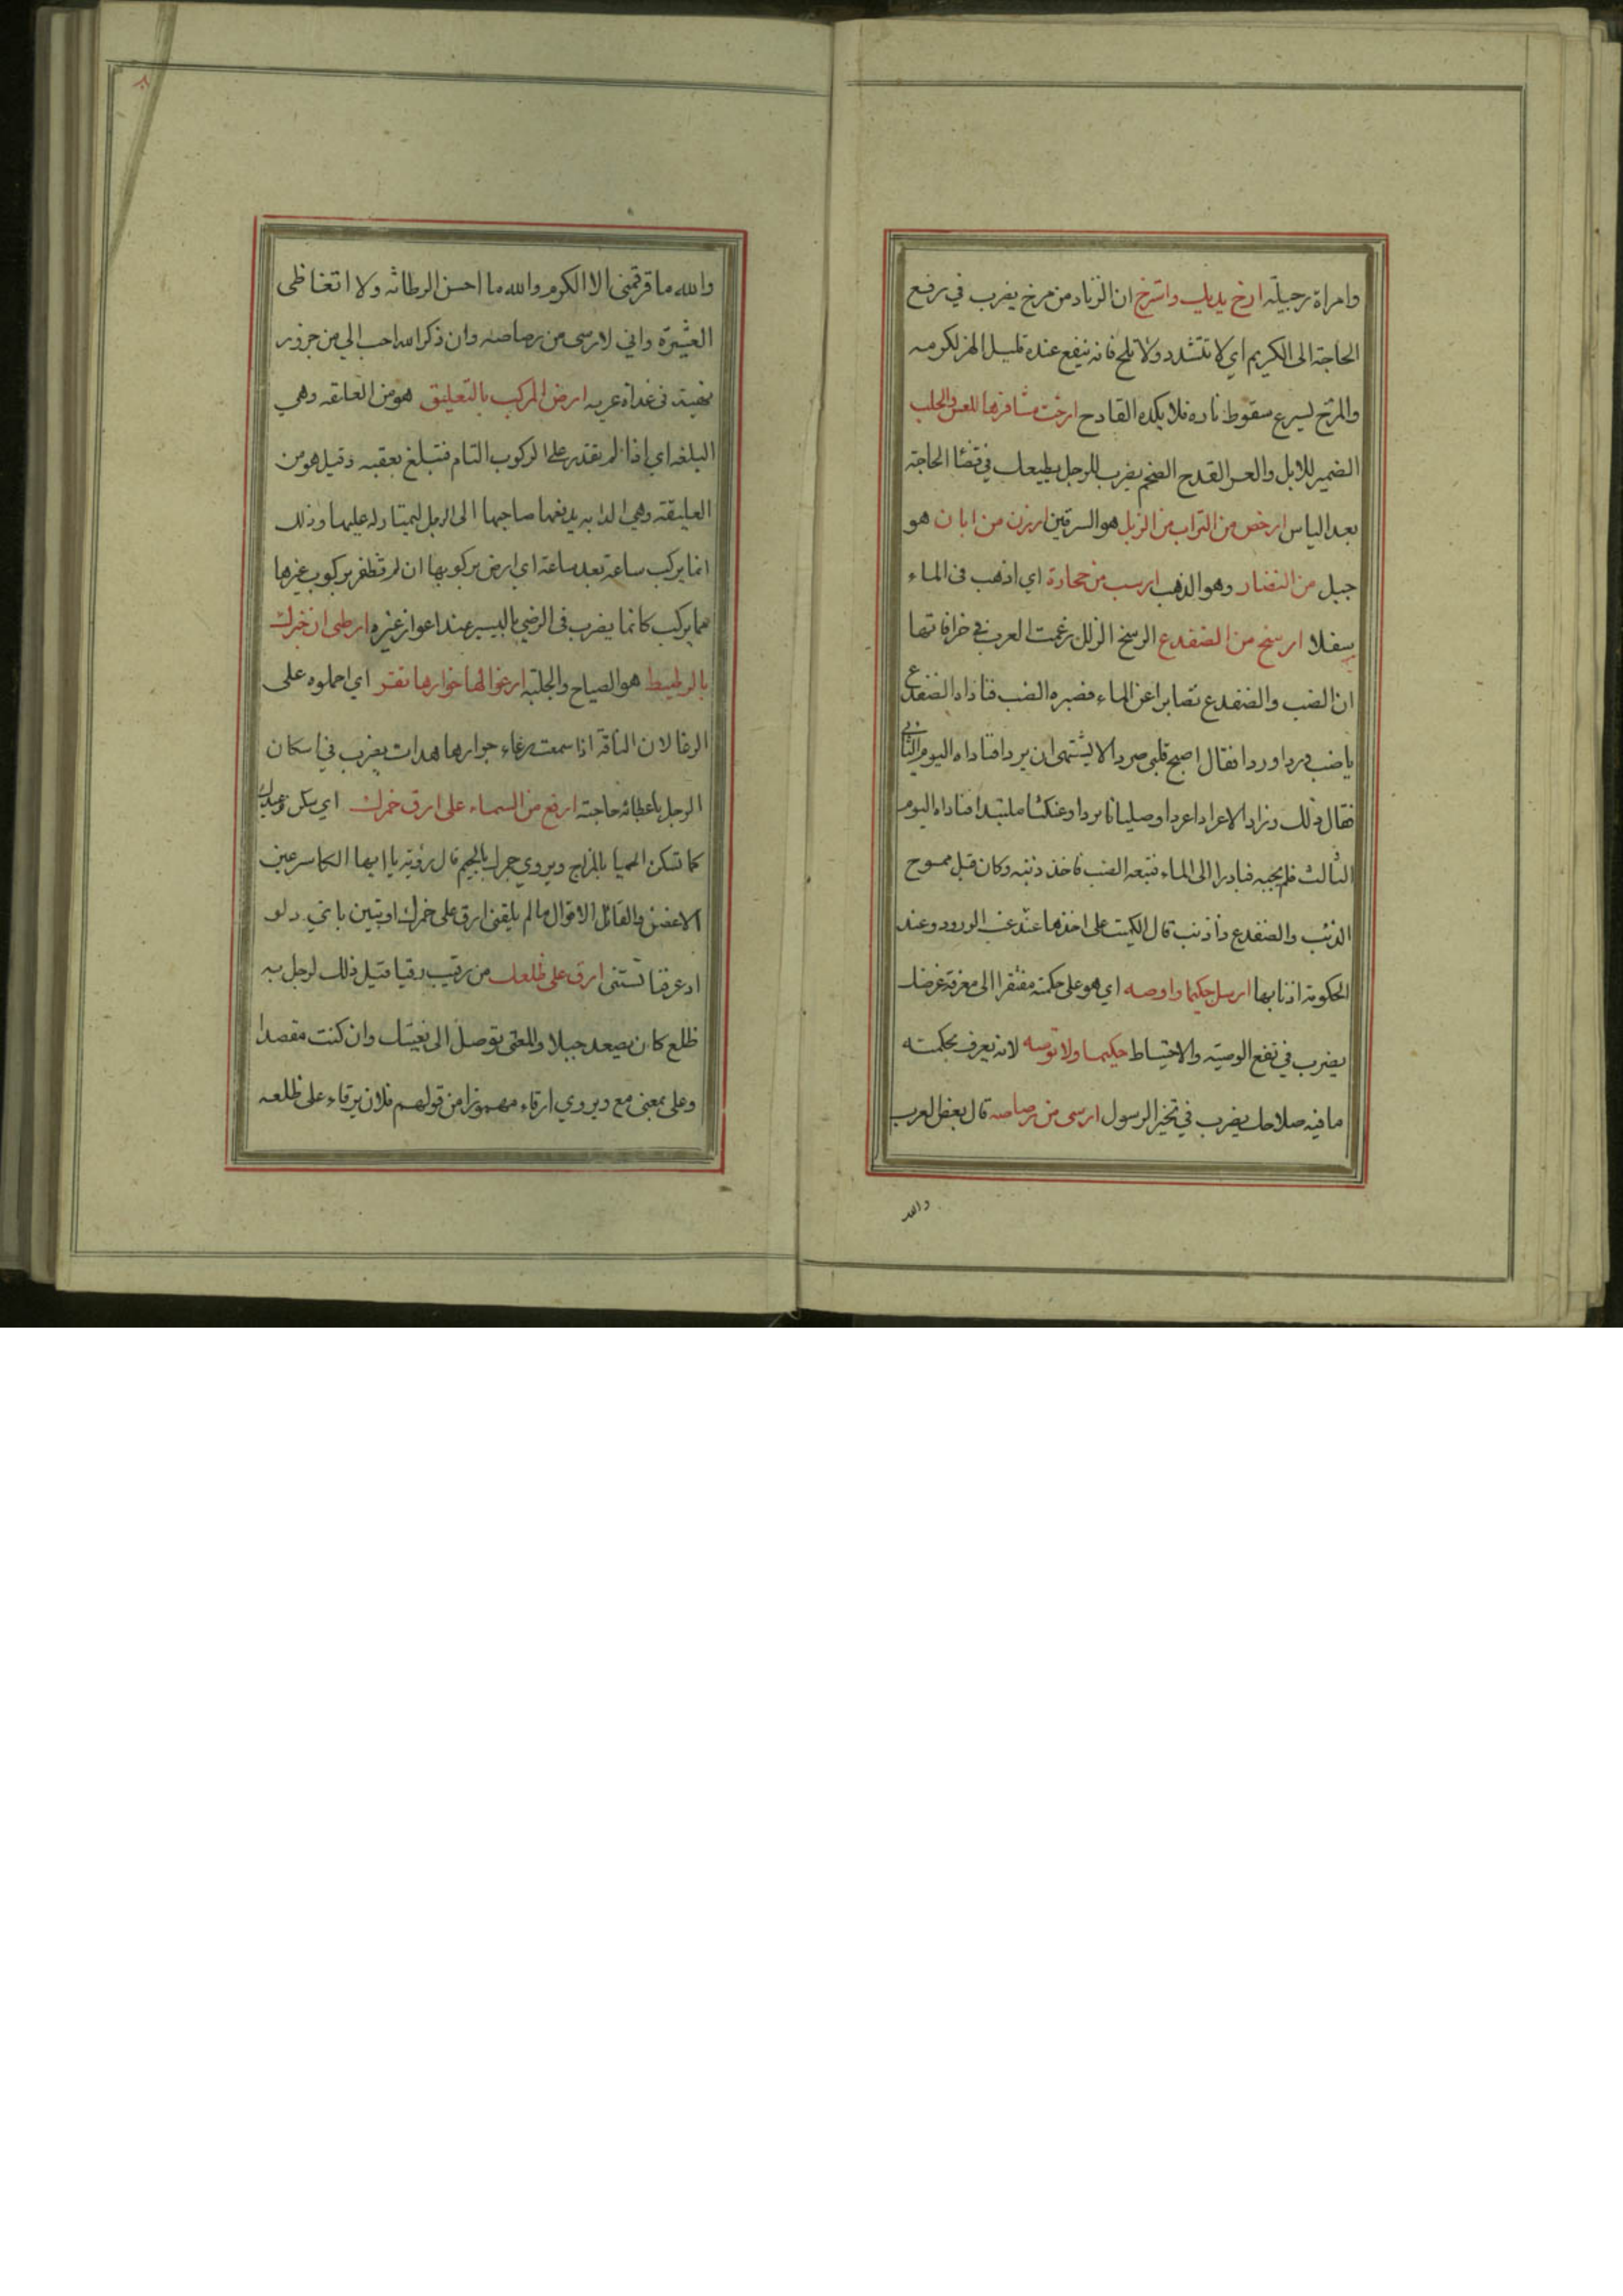 وامراة رجيلة ارخ يديك واسترخ ان الزناد من مرخ يضرب في رفع
الحاجة الى الكريم اي لا تتشدد ولا تلح فانه ينفع عنده قليل الهز لكرمه
والمرخ يسرع سقوط ناره فلا يكده القادح ارخت مشافرها للعس والحلب
الضمير للابل والعس القدح الضخم يضرب للرجل يطيعك في قضا الحاجة
بعد الياس ارخص من التراب من الزبل هو السرقين ارزن من ابان هو
جبل من النضار وهو الذهب ارسب من حجارة اي اذهب فى الماء
سفلا ارسح من الضفدع الرسح الزلل زعمت العرب في خرافاتها
ان الضب والضفدع تصابرا عن الماء فصبره الضب فناداه الضفدع
يا ضب وردا وردا فقال اصبح قلبي صردا لا يشتهى ان يردا فناداه اليوم الثاني
فقال ذلك وزاد الا عرادا عردا وصليانا بردا وعنكثا ملتبدا فناداه اليوم
الثالث فلم يجبه فبادرا الى الماء فتبعه الضب فاخذ ذنبه وكان قبل ممسوح
الذنب والضفدع ذا ذنب قال الكميت على اخذها عند غب الورود وعند
الحكومة اذنابها ارسل حكيما واوصه اي هو على حكمته مفتقر الى معرفة غرضك
يضرب في نفع الوصية والاحتياط حكيما ولا توصه لانه يعرف بحكمته
ما فيه صلاحك يضرب في تخير الرسول ارسى من رصاصه قال بعض العرب
والله
والله ما قرقمنى الا الكرم والله ما احسن الرطانه ولا اتغاظى
العشيرة واني لارسى من رصاصه وان ذكر الله احب الي من جزور
فى غداة عريه ارض المركب بالتعليق هو من العلقه وهي
البلغه اي اذا لم تقدر على الركوب التام فتبلغ بعقبه وقيل هو من
العليقة وهي الدابه يدفعها صاحبها الى الرجل ليمتار له عليها وذلك
انما يركب ساعة بعد ساعة اي ارض بركوبها ان لم تظفر بركوب غيرها
مما يركب كانما يضرب فى الرضي باليسير عند اعواز غيره ارطى ان خيرك
بالرطيط هو الصياح والجلبة ارغوا لها حوارها تقر اي احملوه على
الرغا لان الناقة اذا سمعت رغاء حوارها هدات يضرب في اسكان
الرجل باعطائه حاجته ارفع من السماء على ارق خمرك اي سكن
كما تسكن الحميا بالمزاج ويروي جمرك بالجيم قال رؤبة يا ايها الكاسر عين
الاغضن والقائل الاقوال ما لم يلقنى ارق على خمرك او تبين باي دلو
اذ غرفنا تستنى ارق على ظلعك من رقيت رقيا قيل ذلك لرجل به
ظلع كان يصعد جبلا والمعنى توصل الى بغيتك وان كنت مقصدا
وعلى بمعنى مع ويروي ارقاء مهموزا من قولهم فلان يرقاء على ظلعه